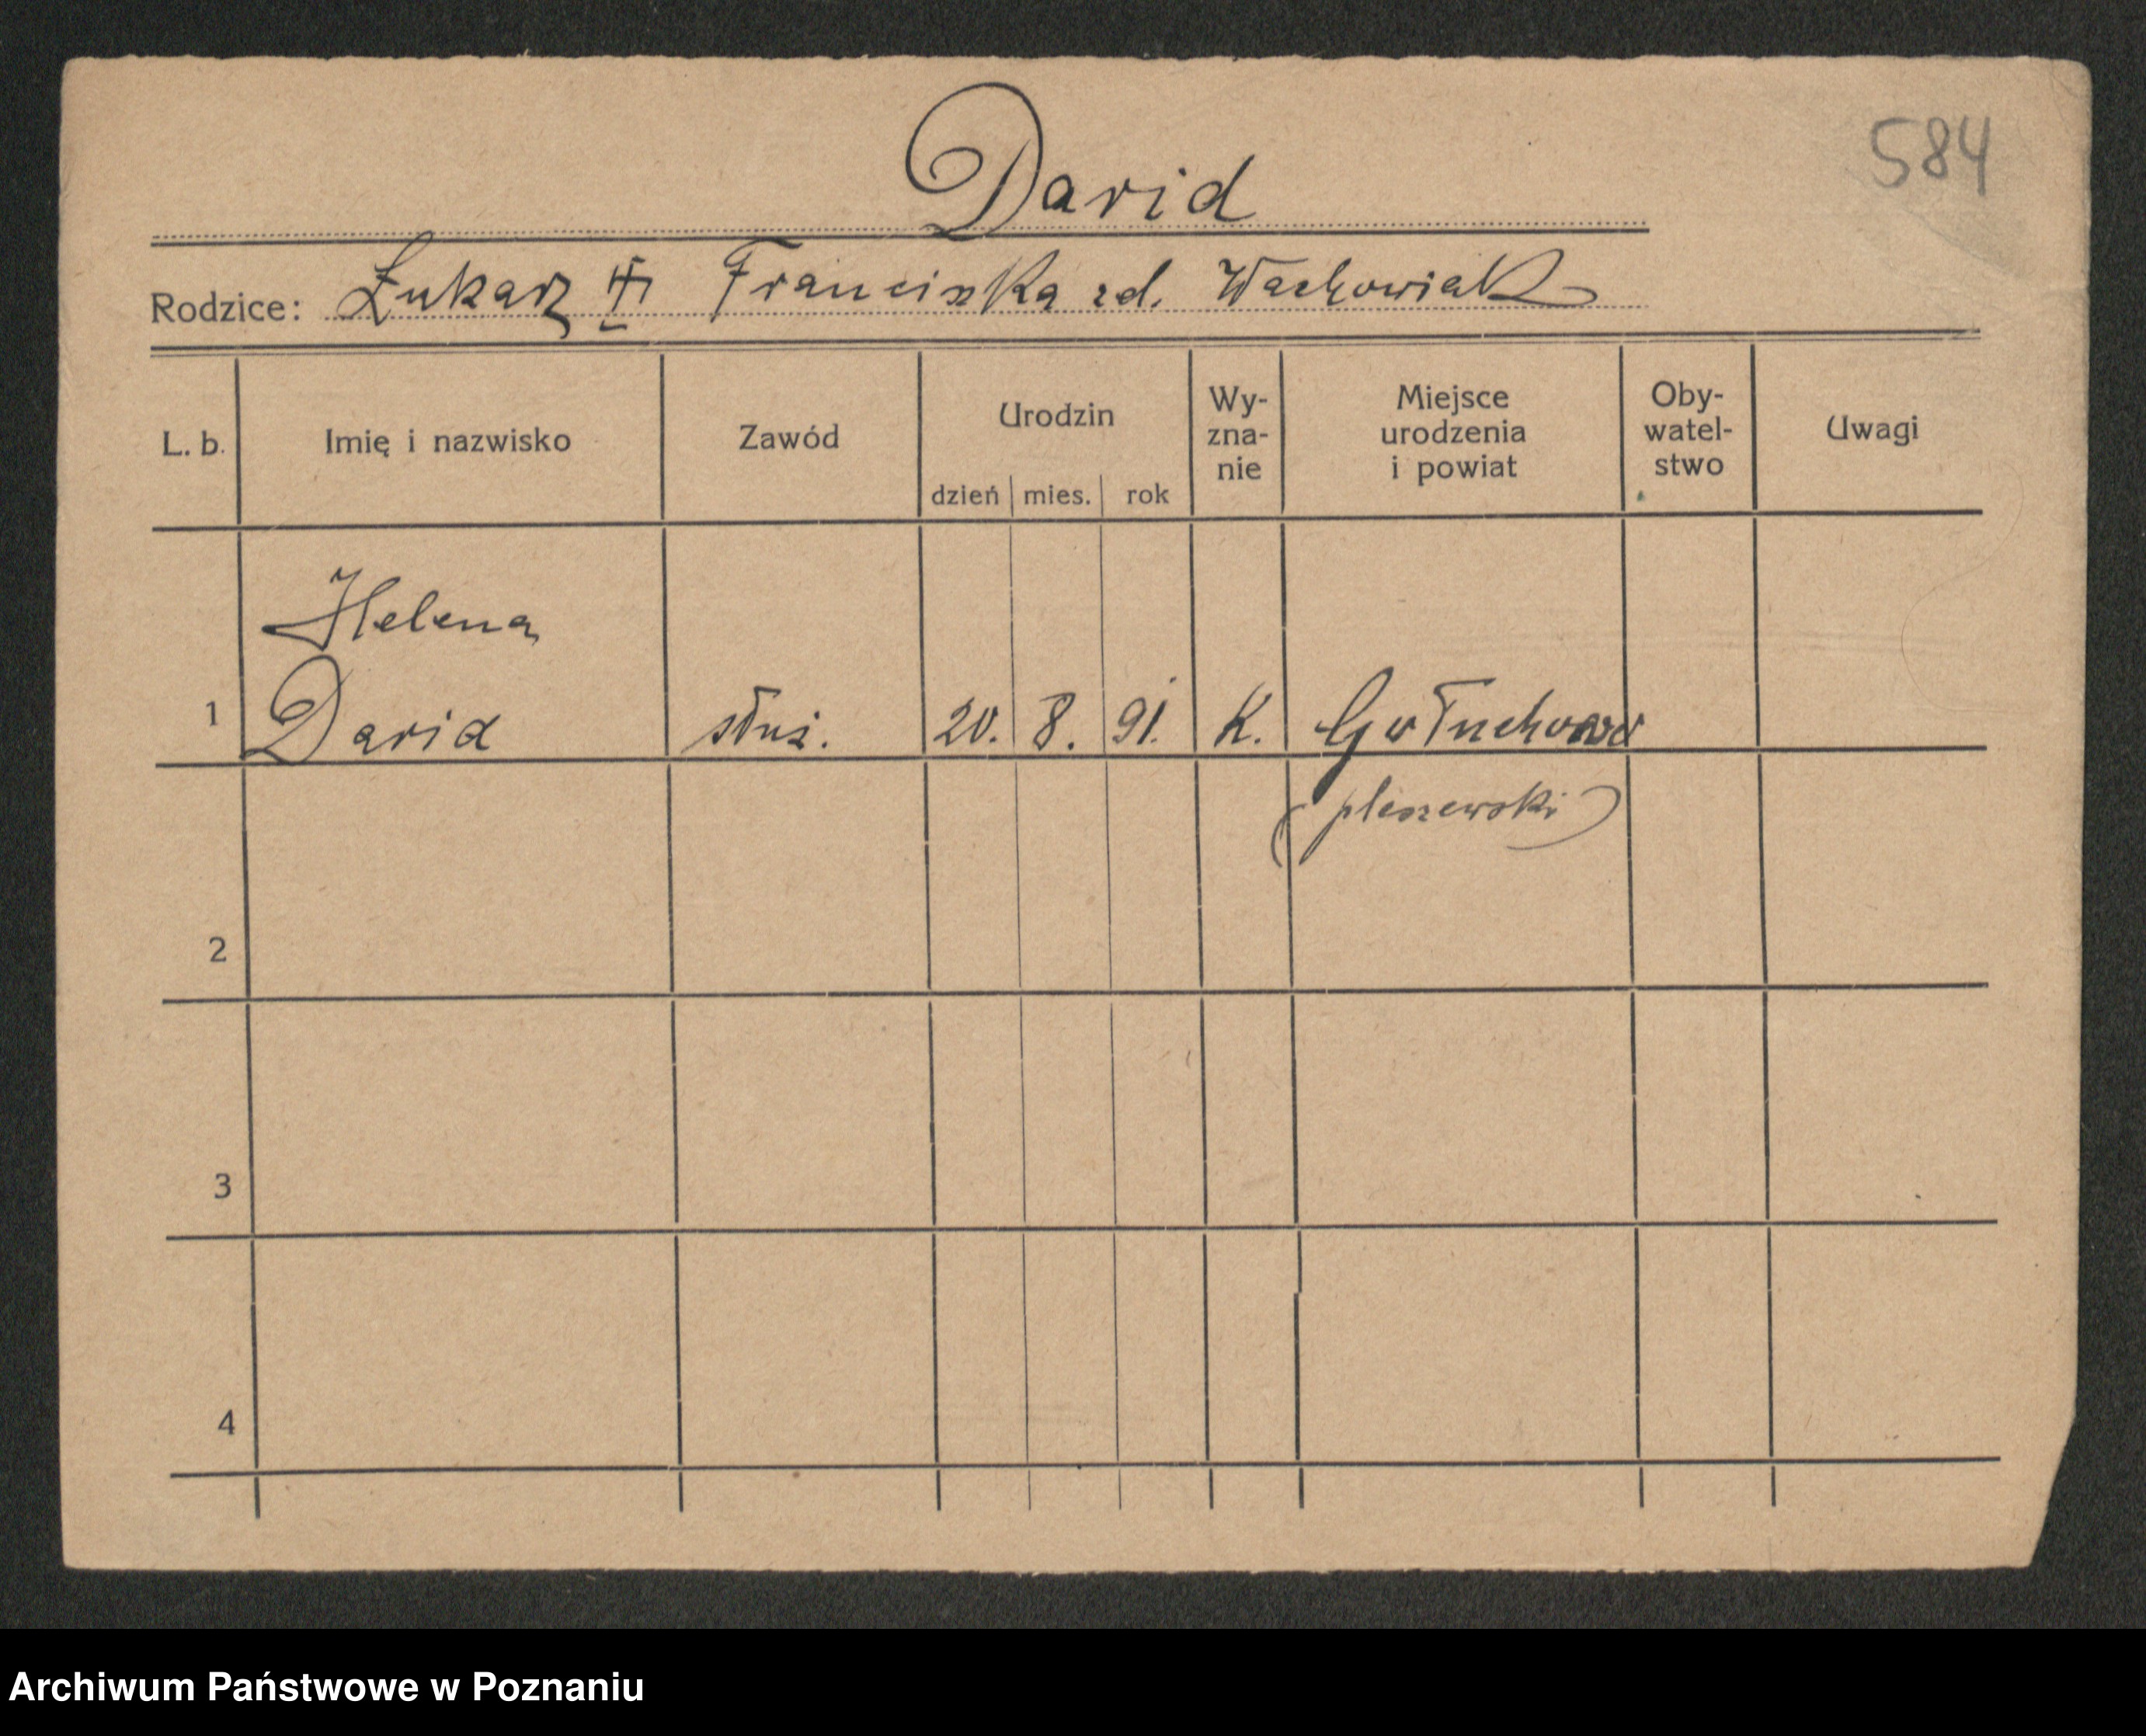 David
584
Rodzice: Łukasz Franciszka zd. Wachowiak
L. b. Imię i nazwisko Zawód Urodzin dzień mies. rok Wy-zna-nie Miejsce urodzenia i powiat Oby-watel-stwo Uwagi
Helena
1 David służ. 20. 8. 91. K. Gołuchowo
(pleszewski)
2
3
4
Archiwum Państwowe w Poznaniu